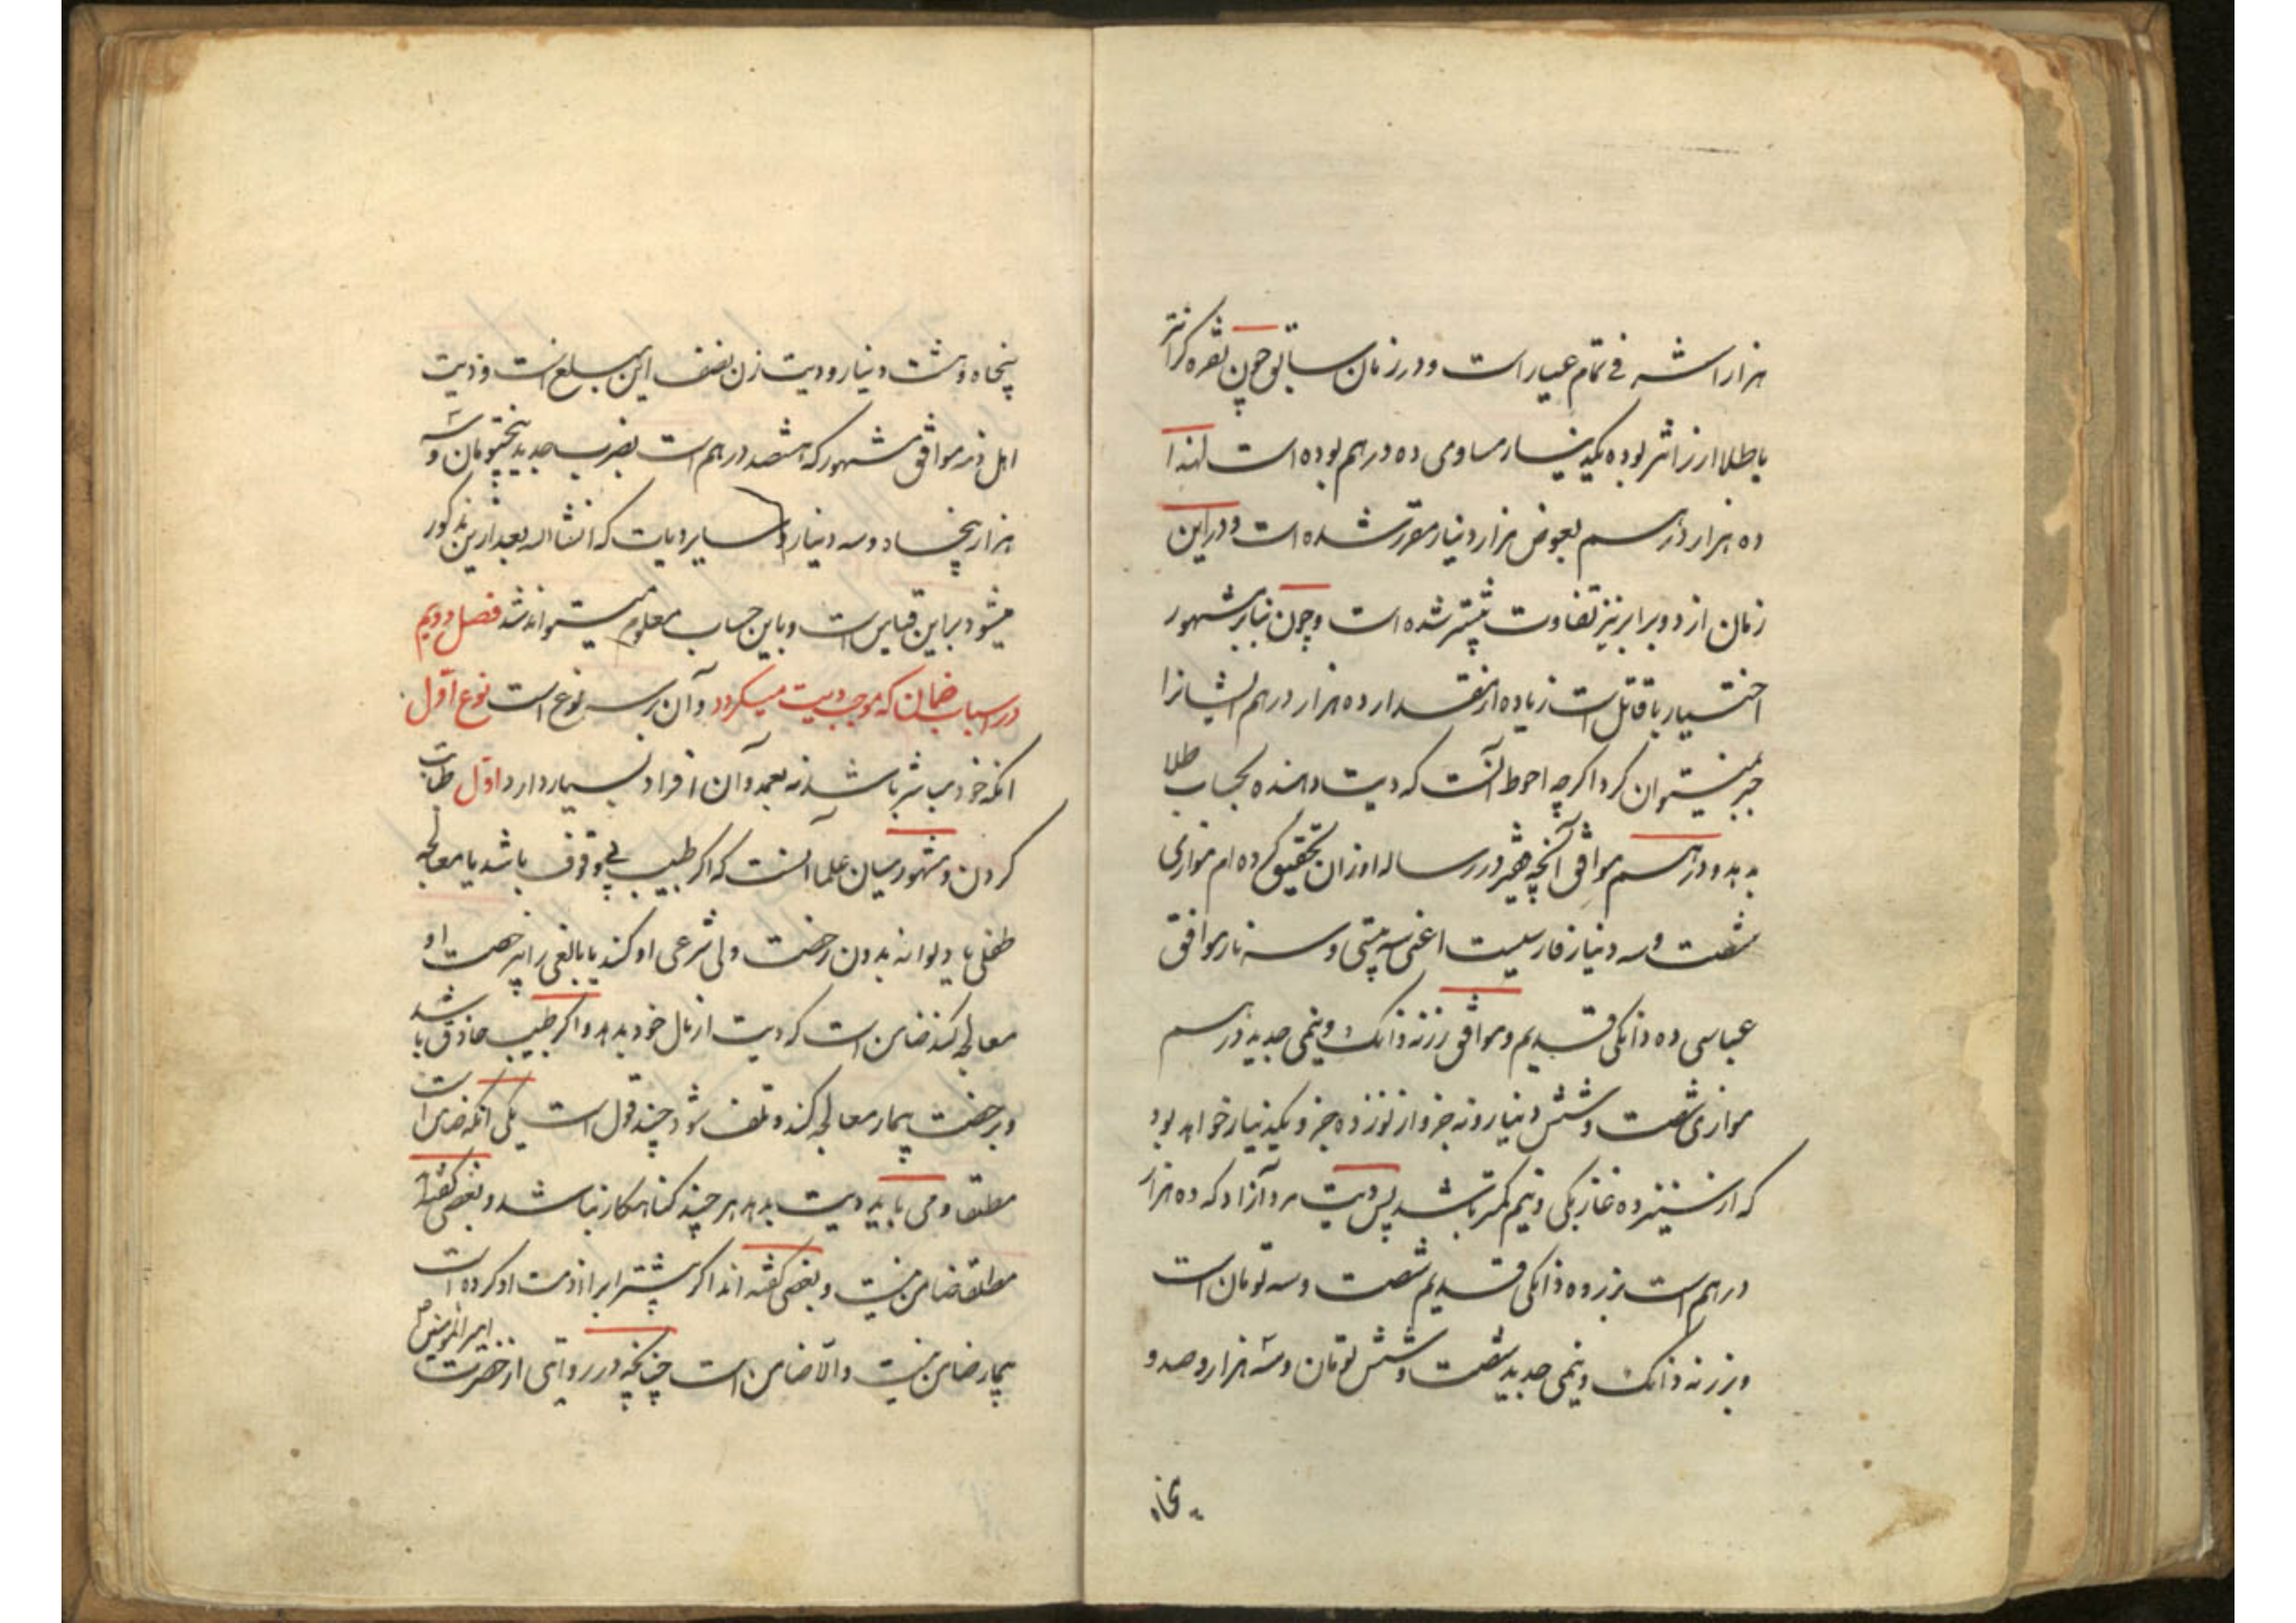 هزار اشرفی تمام عیار است و در زمان سابق چون نقره گرانتر
یا طلا ارزانتر بوده یکدینار مساوی ده درهم بوده است لهذا
ده هزار درهم بعوض هزار دینار مقرر شده است و در این
زمان از دو برابر نیز تفاوت بیشتر شده است و چون بنابر مشهور
اختیار با قاتل است زیاده از مقدار ده هزار درهم ایشانرا
جبر نمیتوان کرد اگرچه احوط آنست که دیت دهنده بحساب طلا
بدهد و درهم موافق آنچه فقیر در رساله اوزان تحقیق کرده ام موازی
شصت و سه دینار فارسیست اعنی سه بیستی و سه نار موافق
عباسی ده دانکی قدیم و موافق زر نه دانک و نیمی جدید درهم
موازی شصت و شش دینار و نه جزو از نوزده جزو یکدینار خواهد بود
که از سیزده غازبکی و نیم کمتر باشد پس دیت مرد آزاد که ده هزار
درهم است بزر ده دانکی قدیم شصت و سه تومان است
و بزر نه دانک و نیمی جدید شصت و شش تومان و سه هزار و صد و
پنجاه
پنجاه و هشت دینار و دیت زن نصف این مبلغ است و دیت
اهل ذمه موافق مشهور که هشتصد درهم است بضرب جدید پنجتومان و سه
هزار پنجاه و سه دینار و سایر دیات که انشا الله بعد ازین مذکور
میشود براین قیاس است و باین حساب معلوم میتواند شد فصل دویم
در اسباب ضمان که موجب دیت میگردد و آن بر سه نوع است نوع اول
انکه خود مباشر باشد نه بعمد و آن افراد بسیار دارد اول طبابت
کردن و مشهور میان علما آنست که اگر طبیب بی وقوف باشد یا معالجه
طفلی یا دیوانه بدون رخصت ولی شرعی او کند یا بالغی را بی رخصت او
معالجه کند ضامن است که دیت از مال خود بدهد و اگر طبیب حاذق باشد
و برخصت بیمار معالجه کند و تلف شود چند قول است یکی انکه ضامن است
مطلقا و می باید دیت بدهد هر چند کناهکار نباشد و بعضی گفته اند
مطلقا ضامن نیست و بعضی گفته اند اگر پیشتر ابرا ذمت او کرده است
بیمار ضامن نیست و الا ضامن است چنانچه در روایتی از حضرت امیر المؤمنین